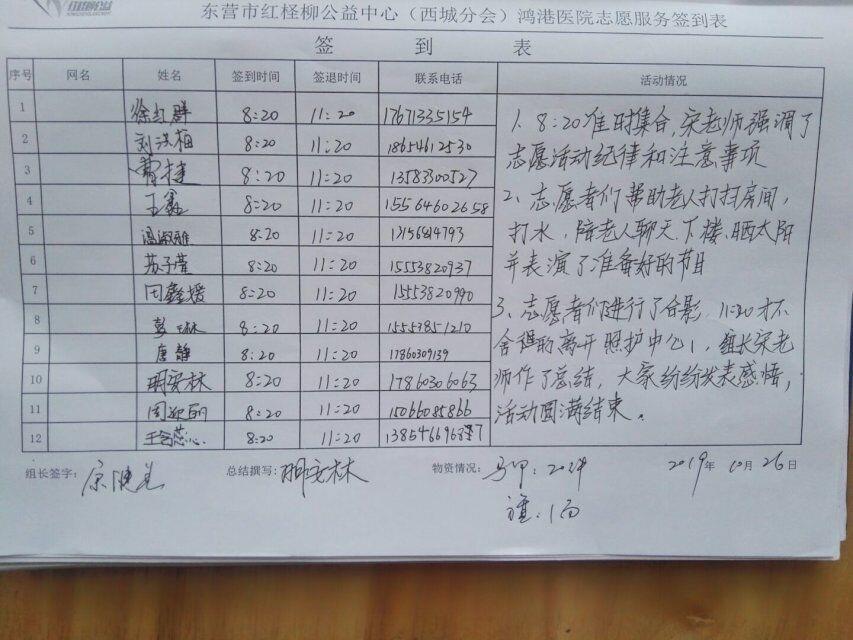 东营市红柽柳公益中心（西城分会）鸿港医院志愿服务签到表
签 到 表
序号 网名 姓名 签到时间 签退时间 联系电话 活动情况
1 徐红群 8:20 11:20 17671335154
2 刘洪梅 8:20 11:20 18654612530
3 曹捷 8:20 11:20 13583300527
4 王鑫 8:20 11:20 15564602658
5 冯淑雅 8:20 11:20
6 苏子莹 8:20 11:20 15553820937
7 周鑫媛 8:20 11:20 15553820990
8 彭琳 8:20 11:20 15553851210
9 唐静 8:20 11:20 17860309139
10 明安林 8:20 11:20 17860306063
11 周迎丽 8:20 11:20 15066085866
12 8:20 11:20
1、8:20准时集合,宋老师强调了
志愿活动纪律和注意事项
2、志愿者们帮助老人打扫房间,
打水、陪老人聊天、下楼、晒太阳
并表演了准备好的节目
3、志愿者们进行了合影,11:20才不
舍得的离开照护中心,组长宋老
师作了总结,大家纷纷发表感悟,
活动圆满结束。
组长签字: 总结撰写: 明安林 物资情况: 马甲:20件 2019年10月26日
旗:1面